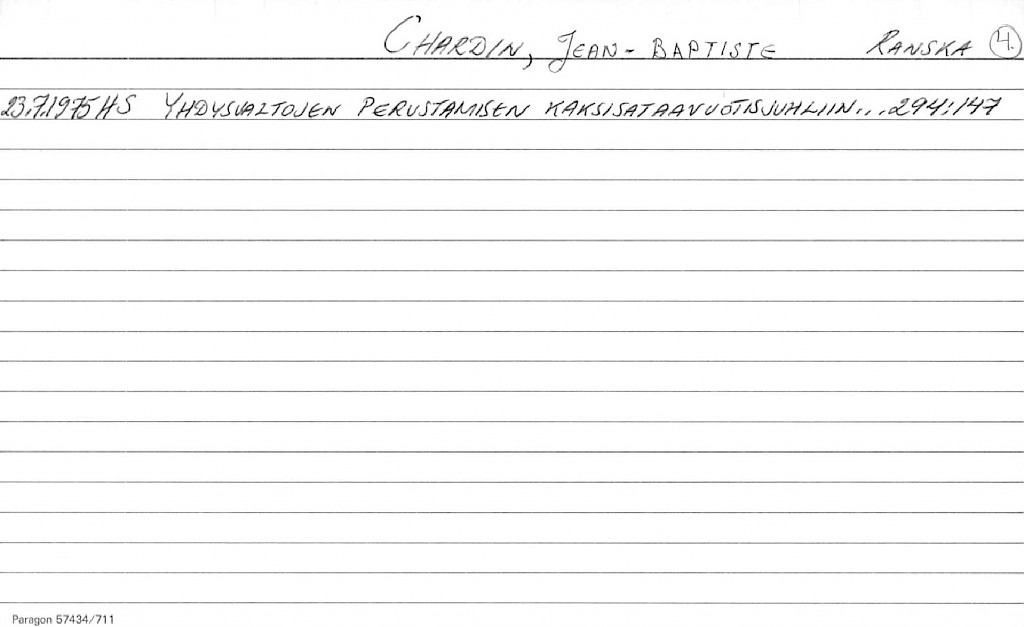 CHARDIN, JEAN-BAPTISTE RANSKA 4.
23.7.1975 HS YHDYSVALTOJEN PERUSTAMISEN KAKSISATAAVUOTISJUHLIIN... 294:147
Paragon 57434/711